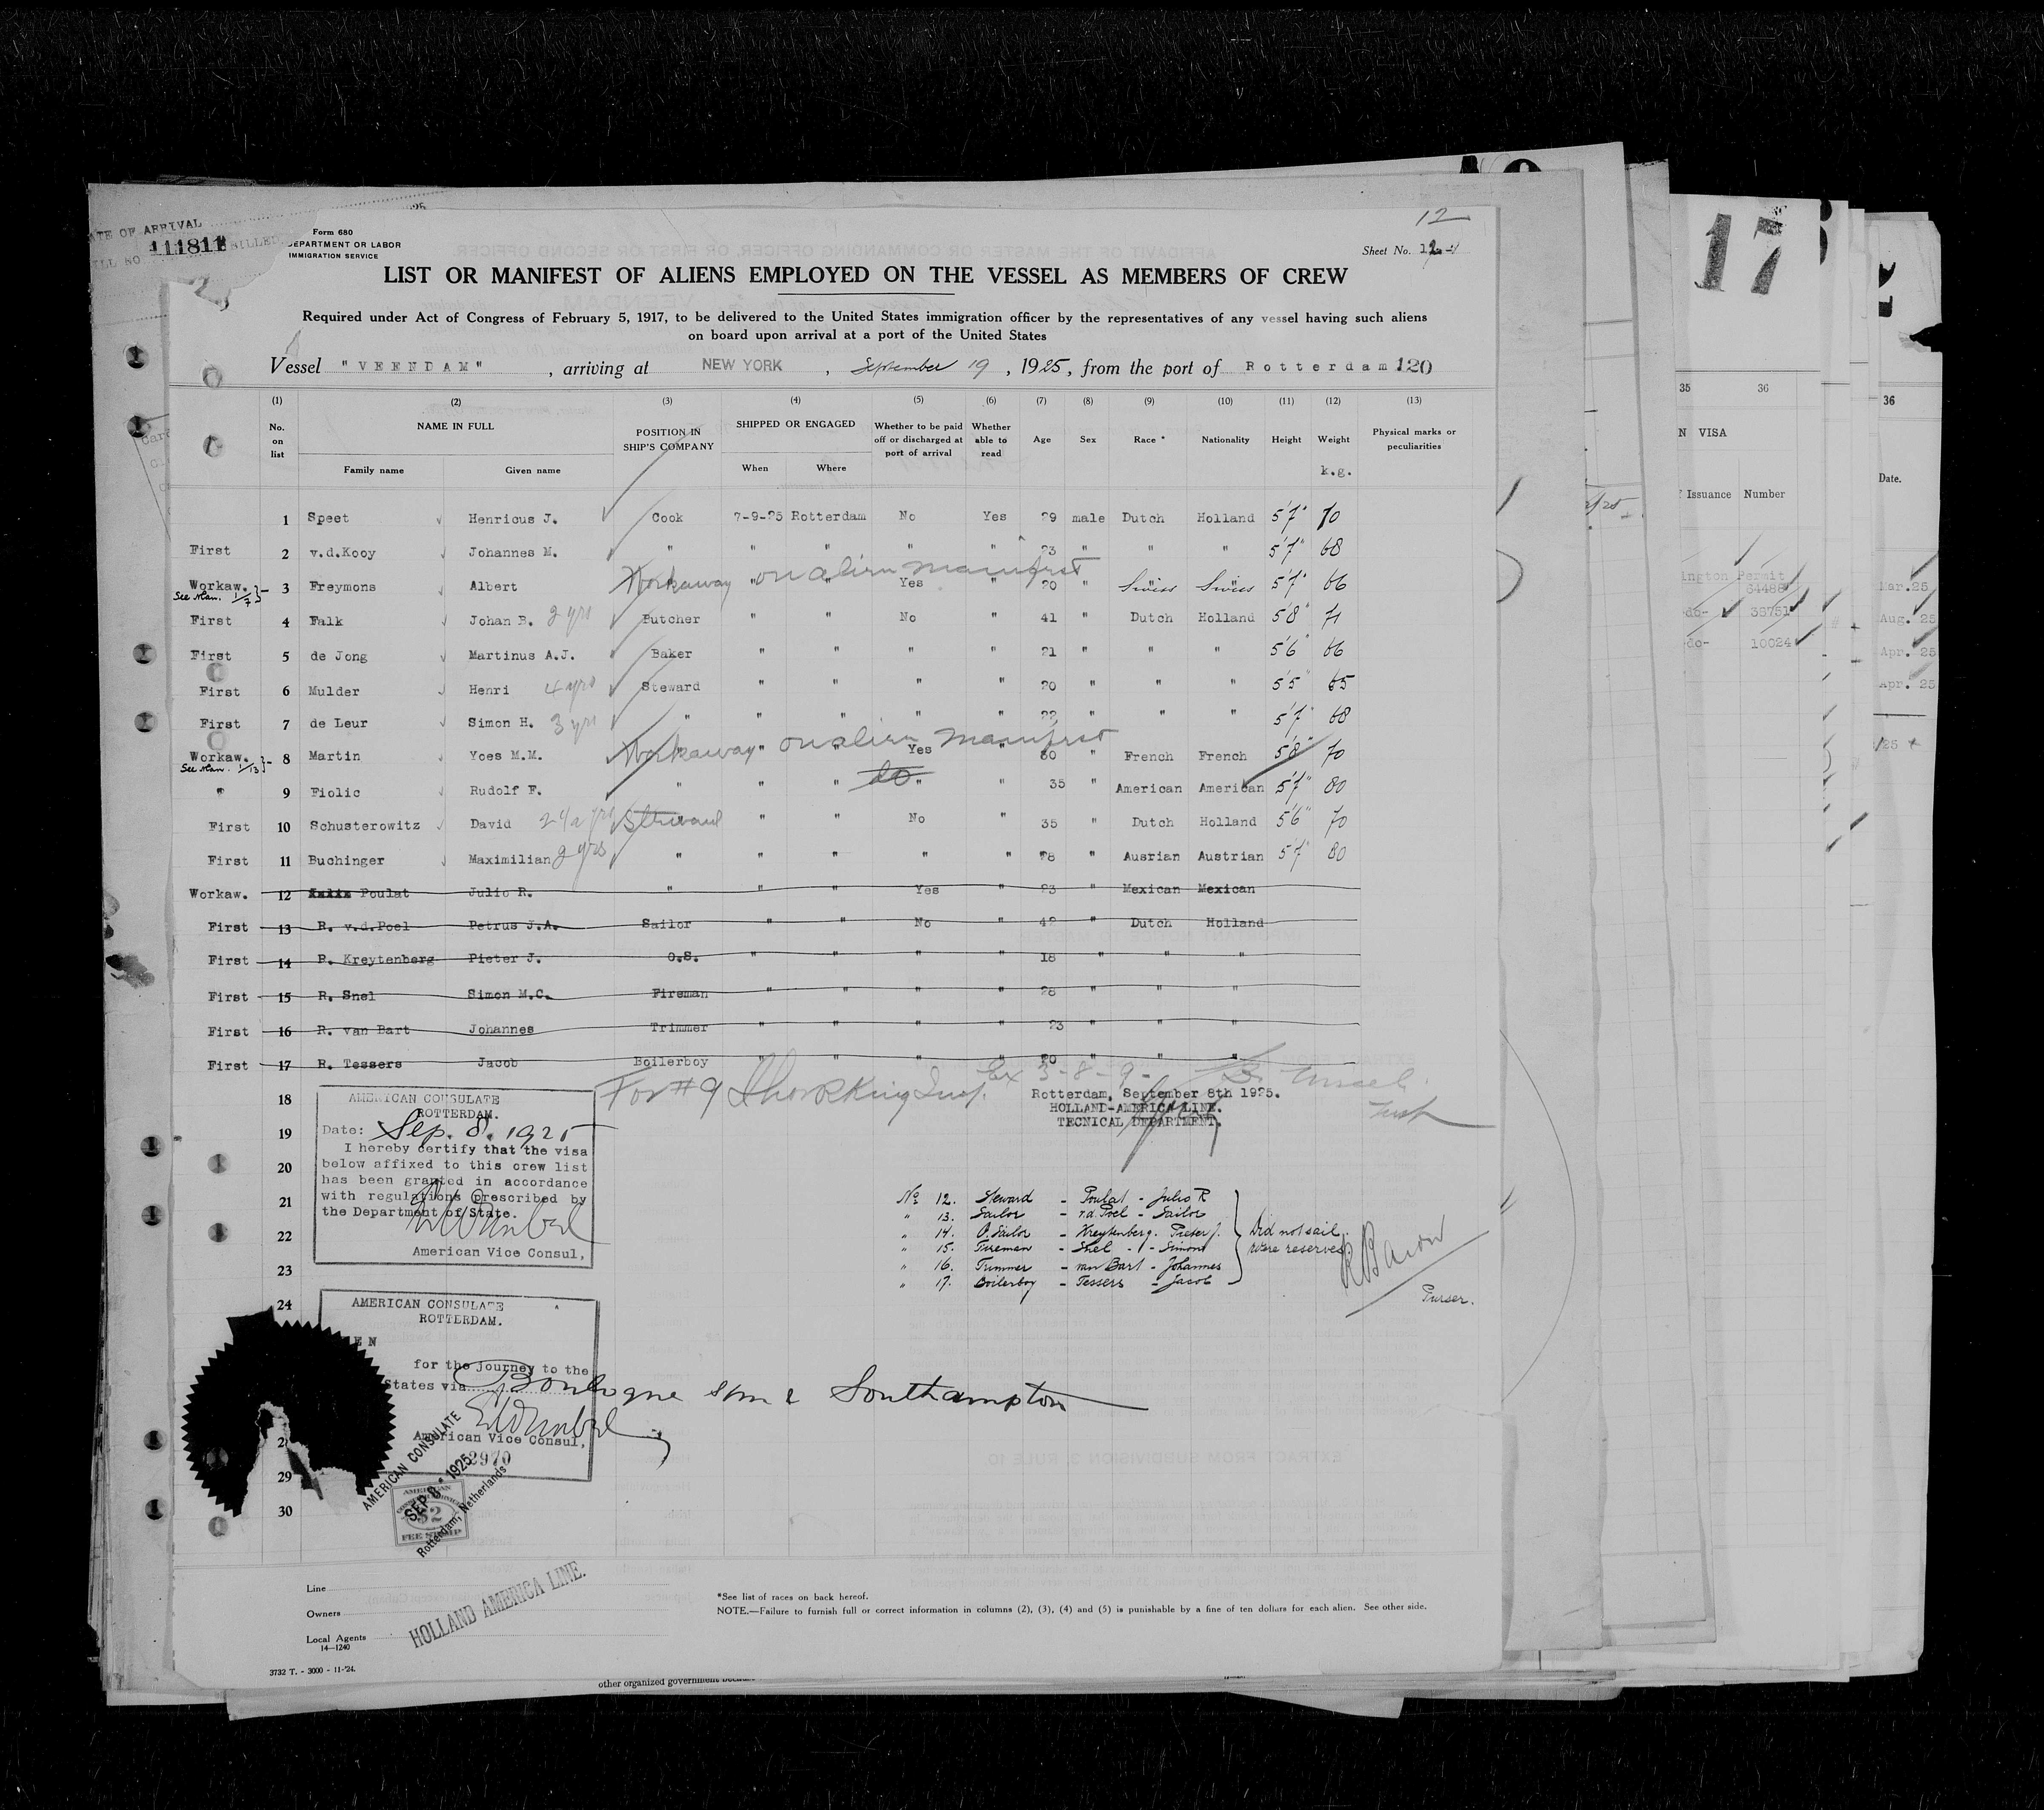 12
ATE OF ARRIVAL
111811
Form 680
DEPARTMENT OR LABOR
IMMIGRATION SERVICE
Sheet No.
LIST OR MANIFEST OF ALIENS EMPLOYED ON THE VESSEL AS MEMBERS OF CREW
Required under Act of Congress of February 5, 1917, to be delivered to the United States immigration officer by the representatives of any vessel having such aliens
on board upon arrival at a port of the United States
Vessel "VEENDAM", arriving at NEW YORK, September 19, 1925, from the port of Rotterdam 120
(1) (2) (3) (4) (5) (6) (7) (8) (9) (10) (11) (12) (13)
No. on list NAME IN FULL POSITION IN SHIP'S COMPANY SHIPPED OR ENGAGED Whether to be paid off or discharged at port of arrival Whether able to read Age Sex Race * Nationality Height Weight Physical marks or peculiarities
Family name Given name When Where k.g.
1 Speet Henricus J. Cook 7-9-25 Rotterdam No Yes 29 male Dutch Holland 5'7" 70
First 2 v.d.Kooy Johannes M. " " " " " 23 " " " 5'7" 68
Workaw. See Man. 1/7 3 Freymons Albert Workaway " on alien manifest " Yes " 20 " Swiss Swiss 5'7" 66
First 4 Falk Johan B. 2 yrs Butcher " " No " 41 " Dutch Holland 5'8" 71
First 5 de Jong Martinus A.J. Baker " " " " 21 " " " 5'6" 66
First 6 Mulder Henri 4 yrs Steward " " " " 20 " " " 5'5" 65
First 7 de Leur Simon H. 3 yrs " " " " " 22 " " " 5'7" 68
Workaw. See Man. 1/13 8 Martin Yoes M.M. Workaway " on alien manifest " Yes " 30 " French French 5'8" 70
" 9 Fiolic Rudolf F. " " " do " " 35 " American American 5'7" 80
First 10 Schusterowitz David Steward " " No " 35 " Dutch Holland 5'6" 70
First 11 Buchinger Maximilian 2 yrs " " " " " 28 " Ausrian Austrian 5'7" 80
Workaw. 12 Poulat Julio R. " " " Yes " 23 " Mexican Mexican
First 13 R. v.d.Poel Petrus J.A. Sailor " " No " 42 " Dutch Holland
First 14 R. Kreytenberg Pieter J. O.S. " " " " 18 " " "
First 15 R. Snel Simon M.C. Fireman " " " " 28 " " "
First 16 R. van Bart Johannes Trimmer " " " " 23 " " "
First 17 R. Tessers Jacob Boilerboy " " " " 20 " " "
For #9 Insp. Ex 3-8-9-
18
19
20
21
22
23
24
AMERICAN CONSULATE
ROTTERDAM.
Date: Sep. 8. 1925
I hereby certify that the visa
below affixed to this crew list
has been granted in accordance
with regulations prescribed by
the Department of State.
American Vice Consul,
Rotterdam, September 8th 1925.
HOLLAND-AMERICA LINE.
TECNICAL DEPARTMENT.
No 12. Steward - Poulat - Julio R
" 13. Sailor - v.d. Poel - Sailor
" 14. O. Sailor - Kreytenberg. Pieter J.
" 15. Fireman - Snel - Simon
" 16. Trimmer - van Bart - Johannes
" 17. Boilerboy - Tessers - Jacob
Did not sail.
Were reserves
Purser.
AMERICAN CONSULATE
ROTTERDAM.
EN
for the Journey to the
States via Boulogne s/m & Southampton
American Vice Consul,
2970
29
30
AMERICAN CONSULATE
SEP 8 1925
Rotterdam, Netherlands
AMERICAN
$2
FEE STAMP
Line
Owners
Local Agents
14—1240
HOLLAND AMERICA LINE.
*See list of races on back hereof.
NOTE.—Failure to furnish full or correct information in columns (2), (3), (4) and (5) is punishable by a fine of ten dollars for each alien. See other side.
3732 T. - 3000 - 11-'24.
other organized government
17
35 36
N VISA
Issuance Number
ington Permit
64488
-do- 38751
-do- 10024
36
Date.
Mar. 25
Aug. 25
Apr. 25
Apr. 25